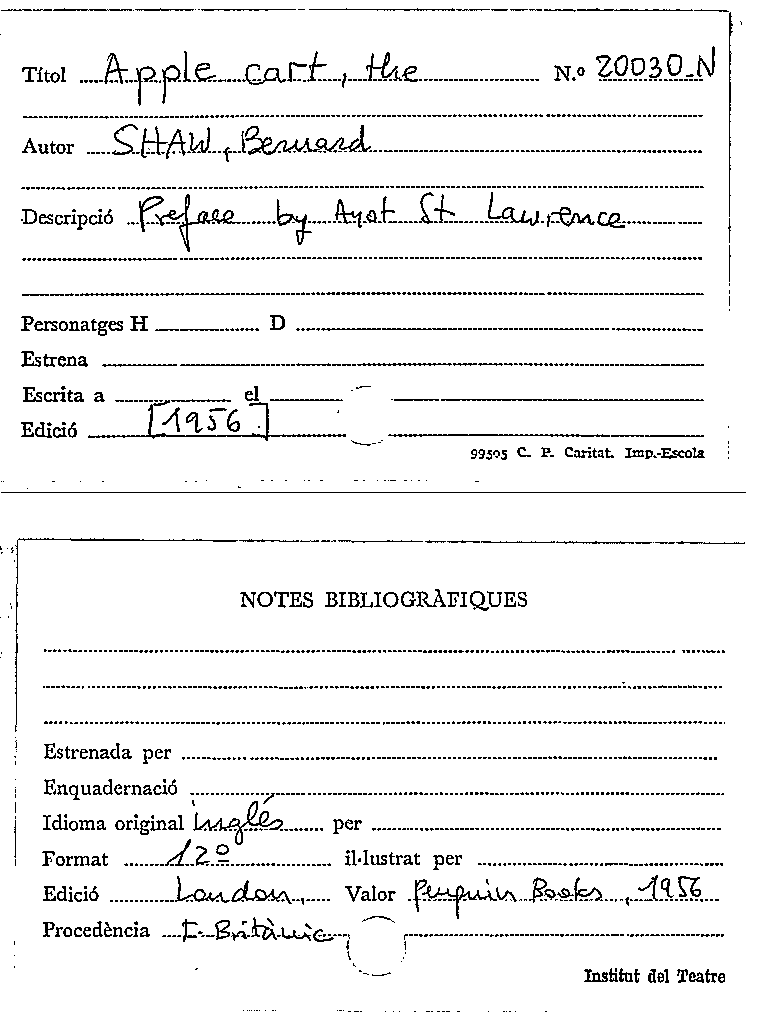 Títol Apple cart, the N.º 20030-N
Autor SHAW, Bernard
Descripció Preface by Ayot St Lawrence
Personatges H D
Estrena
Escrita a el
Edició [1956]
99505 C. P. Caritat. Imp.-Escola
NOTES BIBLIOGRÀFIQUES
Estrenada per
Enquadernació
Idioma original inglés per
Format 12º il·lustrat per
Edició London, Valor Penguin Books, 1956
Procedència I. Britànic
Institut del Teatre